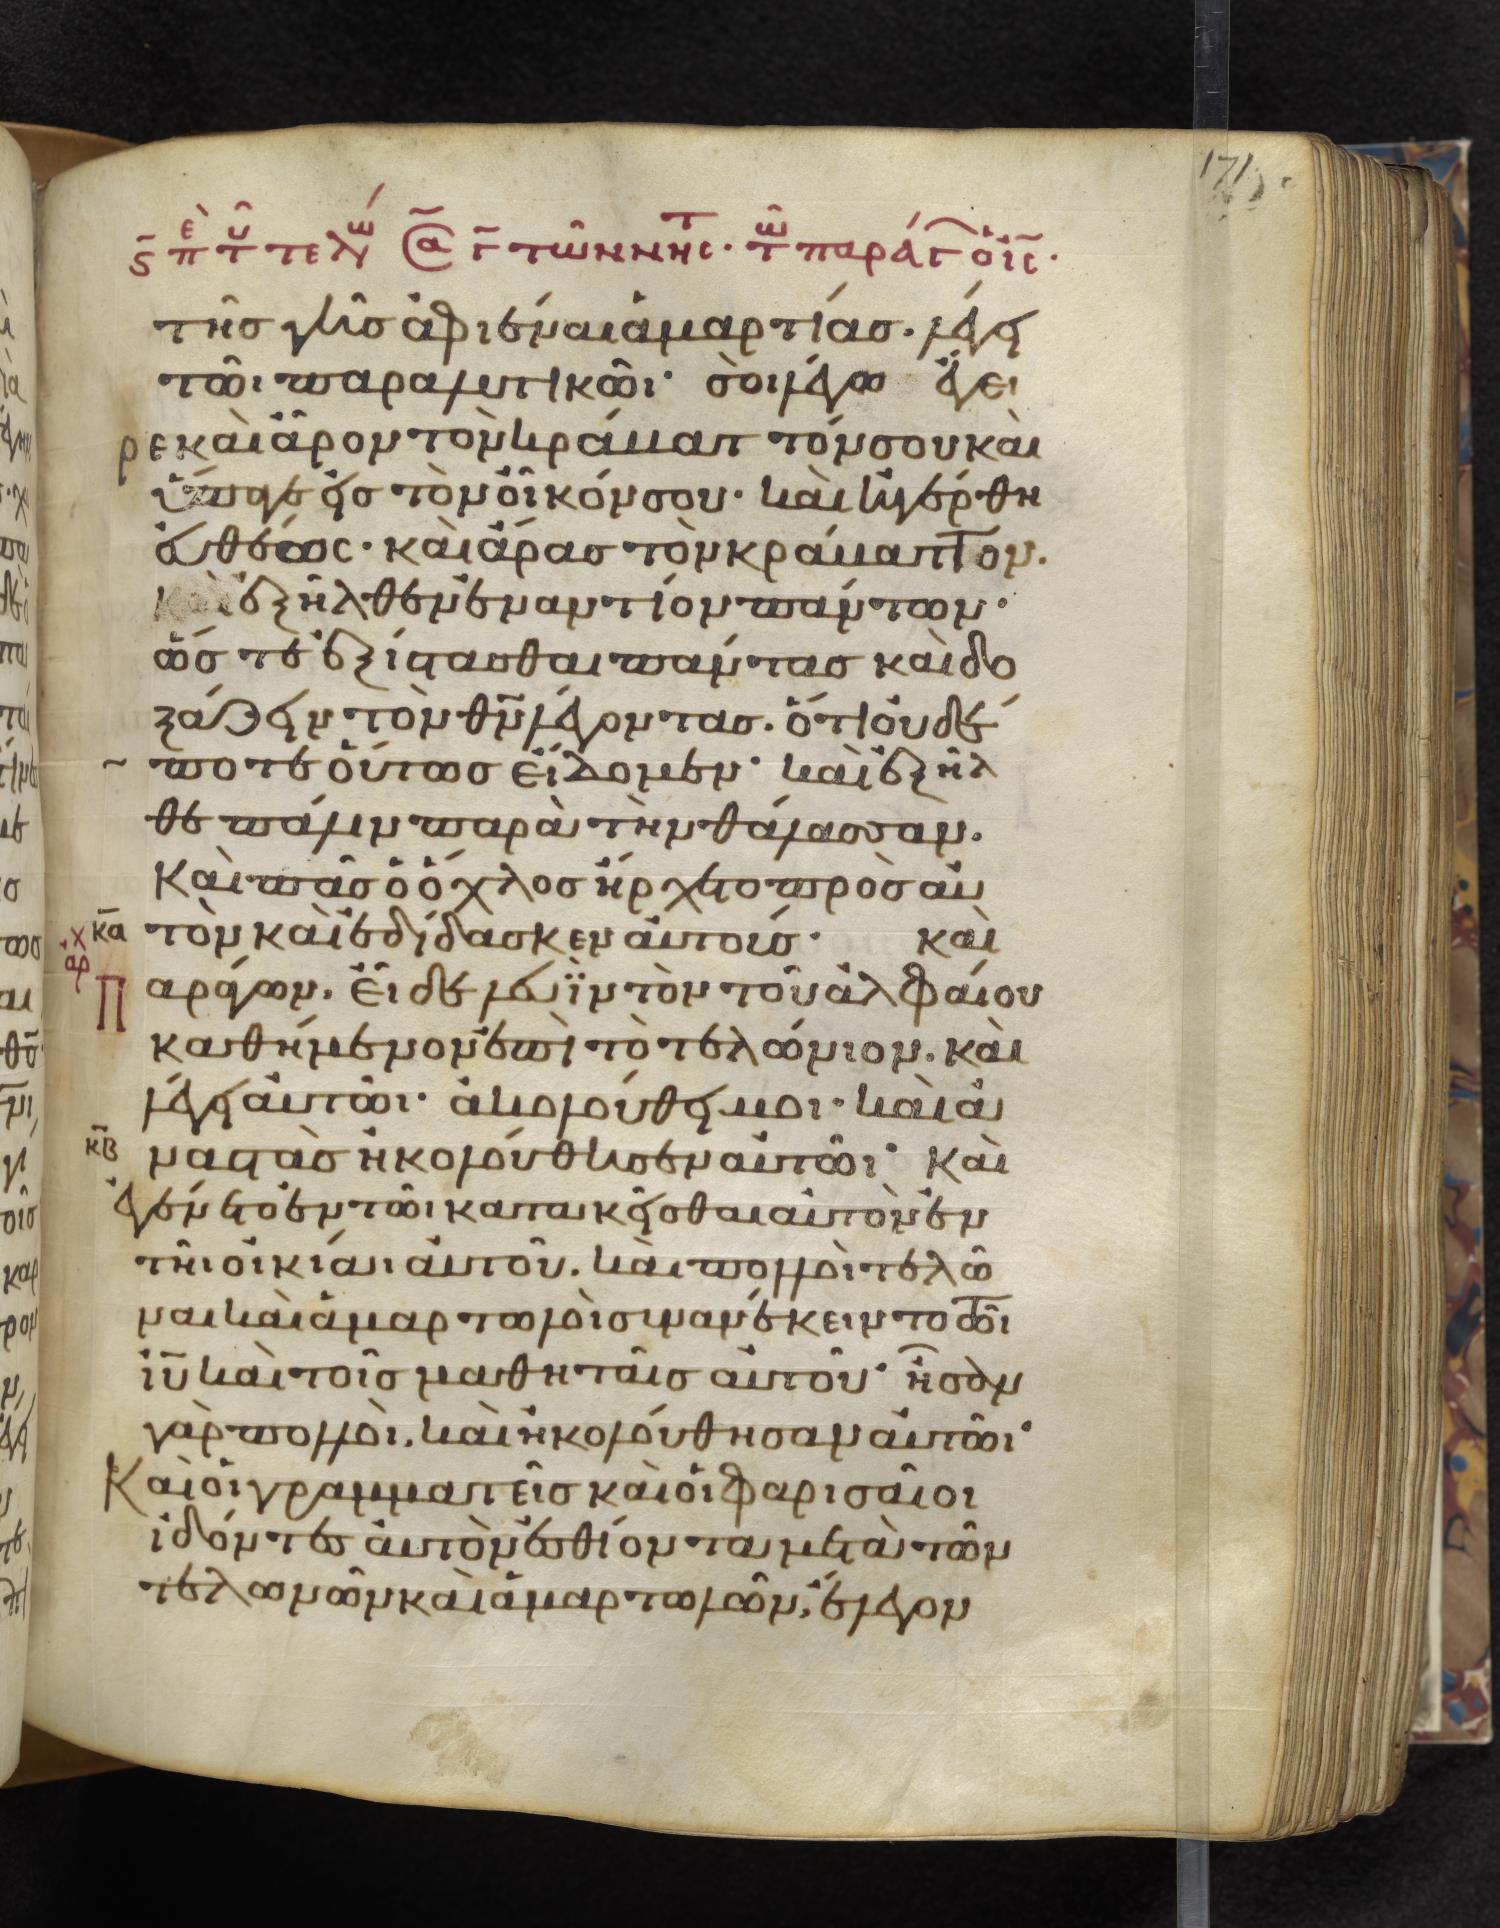 171
ς̄ π̀ε τ̑υ τελώ Ⓐ γ̄ τῶν νης̄τ· τ̑ω παρά γ̑ ὁ ι̅ς̅·
τῆσ γῆσ ἀφιέναι ἁμαρτίασ· λέγει
τῶι παραλυτικῶι· σοὶ λέγω ἔγει
ρε καὶ ἆρον τὸν κράβαττόν σου καὶ
ὕπαγε εἰσ τὸν οἶκόν σου· καὶ ἠγέρθη
εὐθέως· καὶ ἄρασ τὸν κράβαττον·
καὶ ἐξῆλθεν ἐναντίον πάντων·
ὥστε ἐξίστασθαι πάντασ καὶ δο
ξάζειν τὸν θν̅ λέγοντασ· ὅτι οὐδέ
ποτε οὕτωσ εἴδομεν· καὶ ἐξῆλ
θε πάλιν παρὰ τὴν θάλασσαν·
Καὶ πᾶσ ὁ ὄχλοσ ἤρχετο πρὸσ αὐ
κ̅α τὸν καὶ ἐδίδασκεν αὐτούσ· καὶ
ἀρχ Παράγων· εἶδε λευὶν τὸν τοῦ ἀλφαίου
καθήμενον ἐπὶ τὸ τελώνιον· καὶ
λέγει αὐτῶι· ἀκολούθει μοι· καὶ ἀ
κ̅β ναστὰσ ἠκολούθησεν αὐτῶι· καὶ
ἐγένετο ἐν τῶι κατακεῖσθαι αὐτὸν ἐν
τῆι οἰκίαι αὐτοῦ· καὶ πολλοὶ τελῶ
ναι καὶ ἁμαρτωλοὶ συνανέκειντο τῶι
ιυ̅ καὶ τοῖσ μαθηταῖσ αὐτοῦ· ἦσαν
γὰρ πολλοὶ· καὶ ἠκολούθησαν αὐτῶι·
Καὶ οἱ γραμματεῖσ καὶ οἱ φαρισαῖοι
ἰδόντεσ αὐτὸν ἐσθίοντα μετὰ τῶν
τελωνῶν καὶ ἁμαρτωλῶν, ἔλεγον